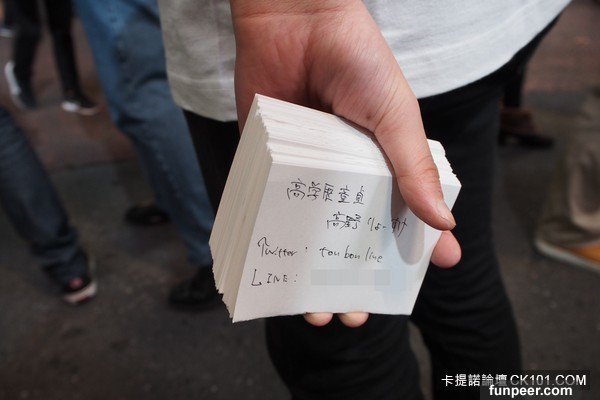 高学歴童貞
高野
Twitter: toubouline
LINE:
卡提諾論壇 CK101.COM
funpeer.com